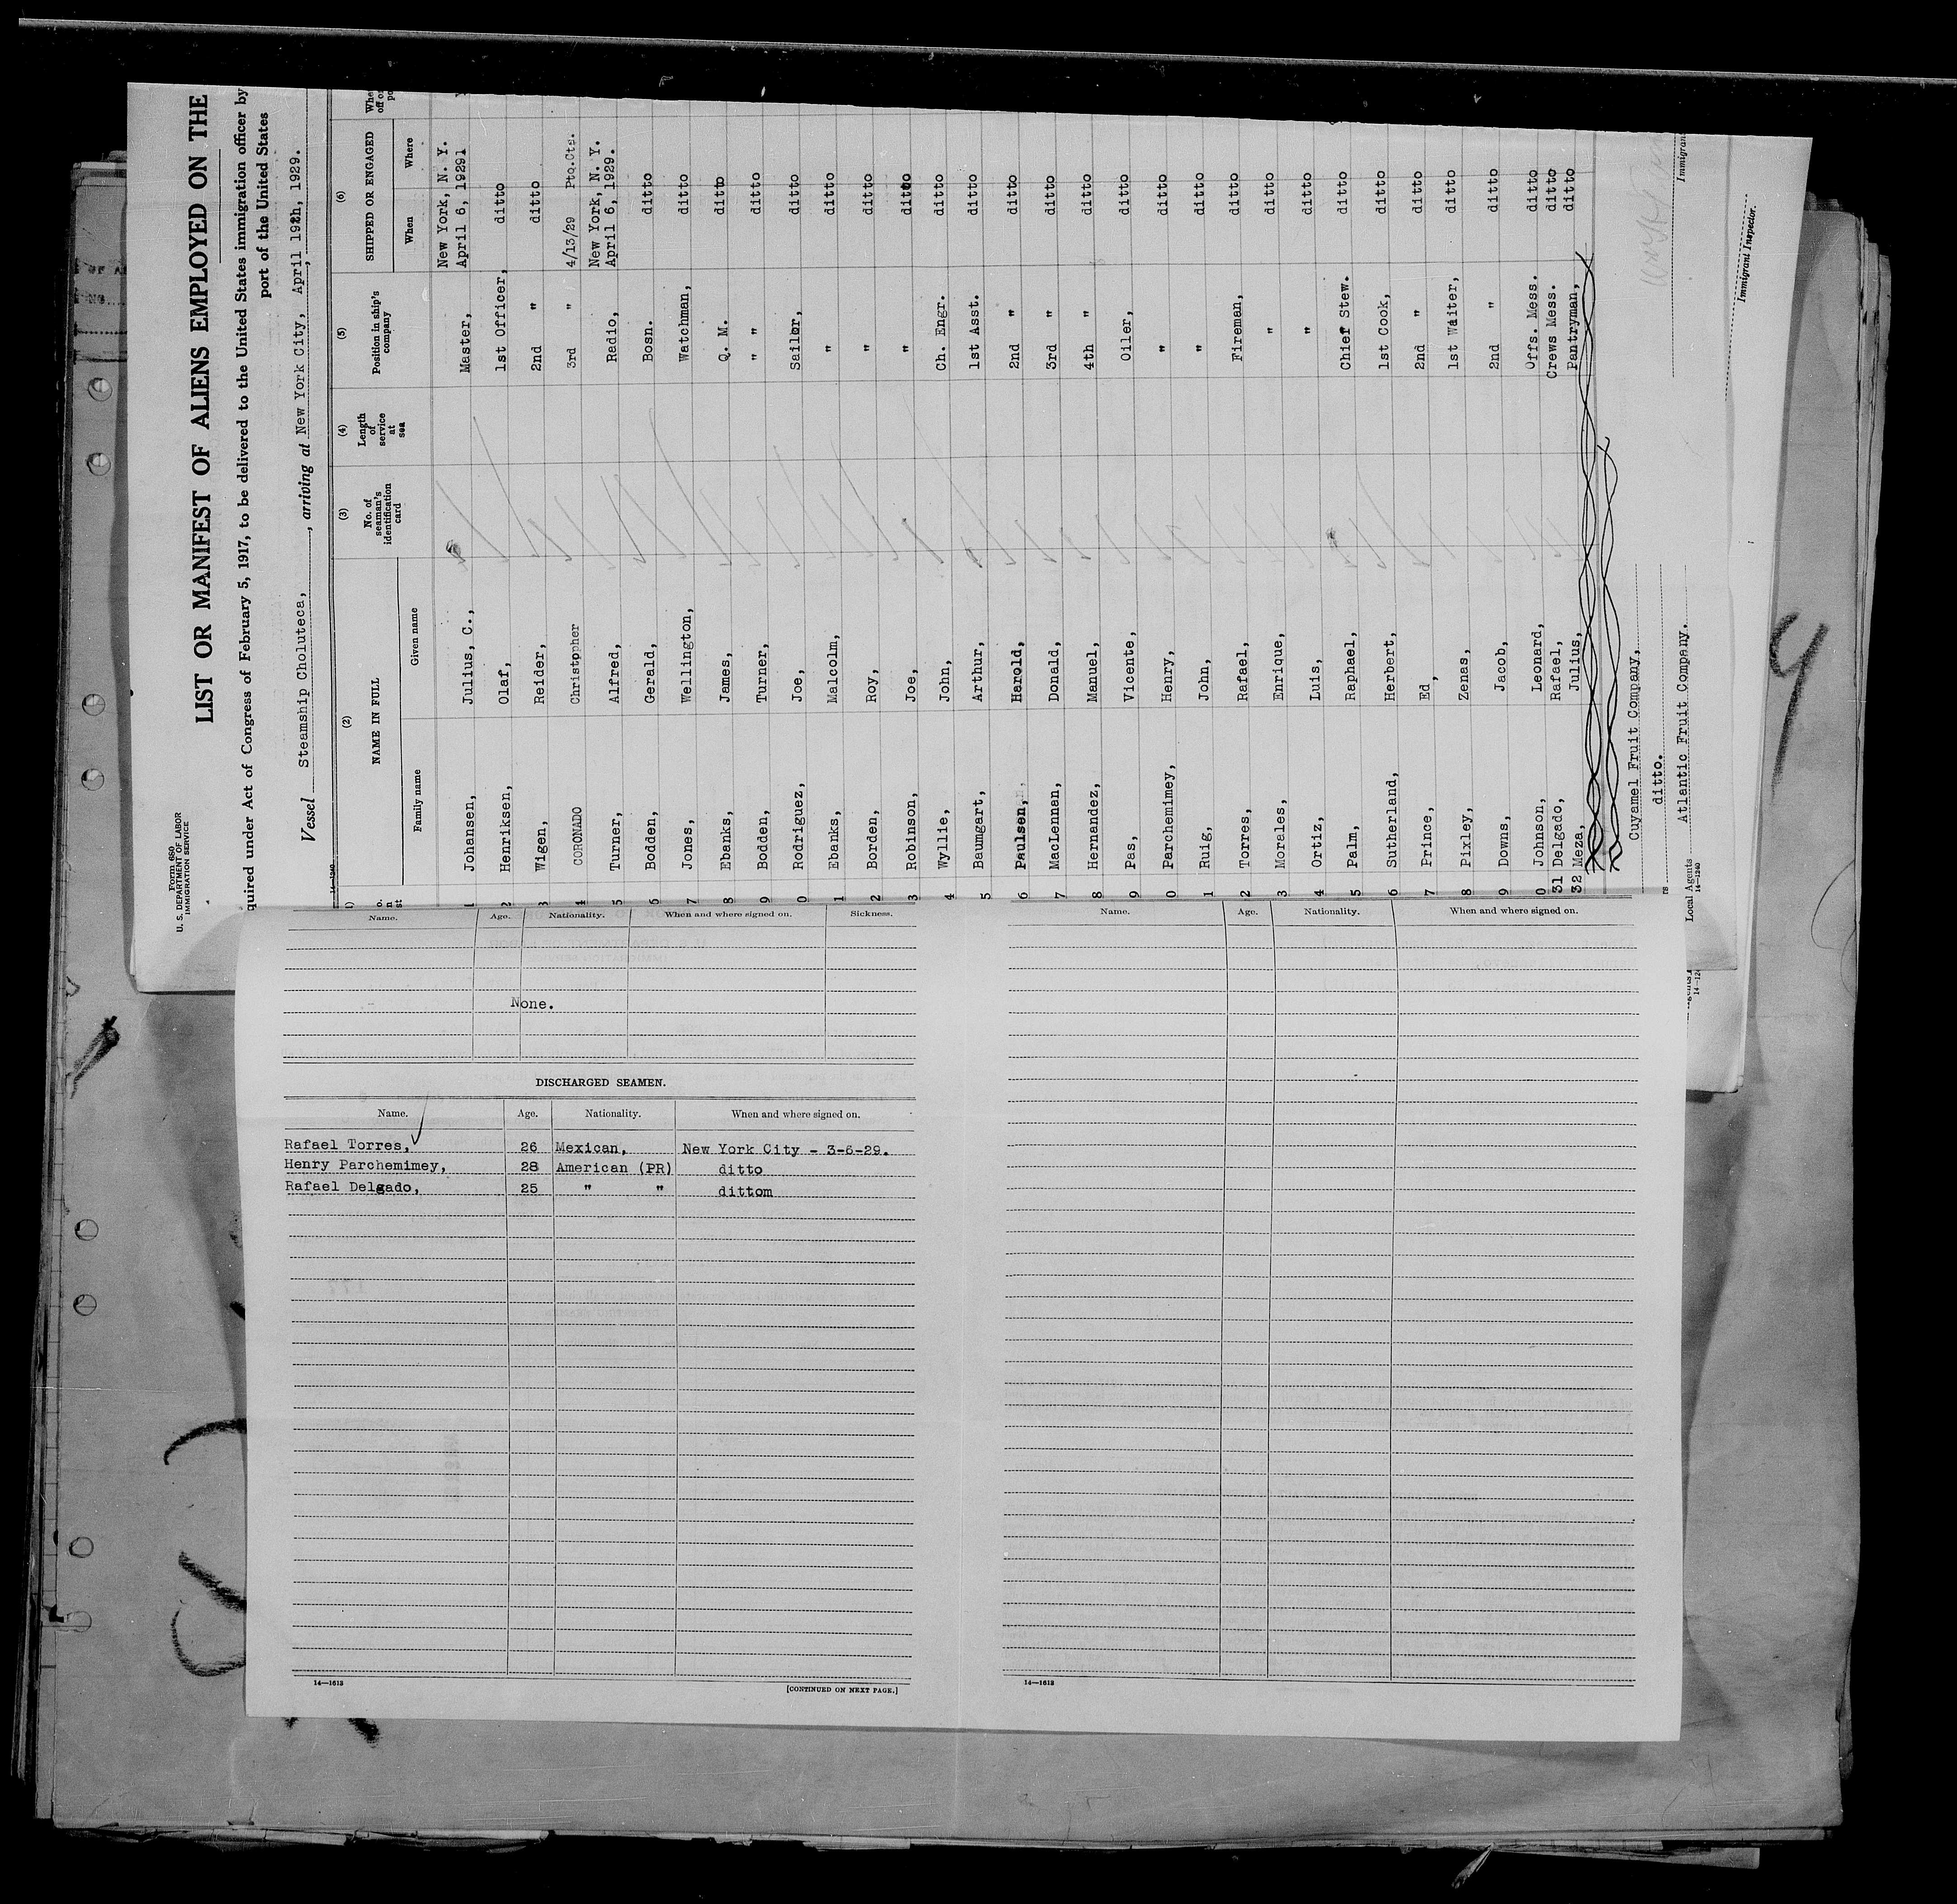 Form 680
U. S. DEPARTMENT OF LABOR
IMMIGRATION SERVICE
LIST OR MANIFEST OF ALIENS EMPLOYED ON THE
quired under Act of Congress of February 5, 1917, to be delivered to the United States immigration officer by
port of the United States
Vessel Steamship Choluteca, , arriving at New York City, April 192h, 1929.
(2) (3) (4) (5) (6)
NAME IN FULL No. of seaman's identification card Length of service at sea Position in ship's company SHIPPED OR ENGAGED
Family name Given name When Where
New York, N. Y.
1 Johansen, Julius, C., Master, April 6, 19291
2 Henriksen, Olaf, 1st Officer, ditto
3 Wigen, Reider, 2nd " ditto
4 CORONADO Christopher 3rd " 4/13/29 Pto.Cts.
New York, N. Y.
5 Turner, Alfred, Radio, April 6, 1929.
6 Bodden, Gerald, Bosn. ditto
7 Jones, Wellington, Watchman, ditto
8 Ebanks, James, Q. M. ditto
9 Bodden, Turner, " " ditto
0 Rodriguez, Joe, Sailor, ditto
1 Ebanks, Malcolm, " ditto
2 Borden, Roy, " ditto
3 Robinson, Joe, " ditto
4 Wyllie, John, Ch. Engr. ditto
5 Baumgart, Arthur, 1st Asst. ditto
6 Paulsen, Harold, 2nd " ditto
7 MacLennan, Donald, 3rd " ditto
8 Hernandez, Manuel, 4th " ditto
9 Pas, Vicente, Oiler, ditto
0 Parchemimey, Henry, " ditto
1 Ruig, John, " ditto
2 Torres, Rafael, Fireman, ditto
3 Morales, Enrique, " ditto
4 Ortiz, Luis, " ditto
5 Palm, Raphael, Chief Stew. ditto
6 Sutherland, Herbert, 1st Cook, ditto
7 Prince, Ed, 2nd " ditto
8 Pixley, Zenas, 1st Waiter, ditto
9 Downs, Jacob, 2nd " ditto
0 Johnson, Leonard, Offs. Mess. ditto
31 Delgado, Rafael, Crews Mess. ditto
32 Meza, Julius, Pantryman, ditto
Cuyamel Fruit Company,
ditto.
Local Agents Atlantic Fruit Company.
14-1240
Immigrant Inspector.
Name. Age. Nationality. When and where signed on. Sickness.
None.
DISCHARGED SEAMEN.
Name. Age. Nationality. When and where signed on.
Rafael Torres, 26 Mexican, New York City - 3-6-29.
Henry Parchemimey, 28 American (PR) ditto
Rafael Delgado, 25 " " dittom
14—1613
[CONTINUED ON NEXT PAGE.]
Name. Age. Nationality. When and where signed on.
14—1613